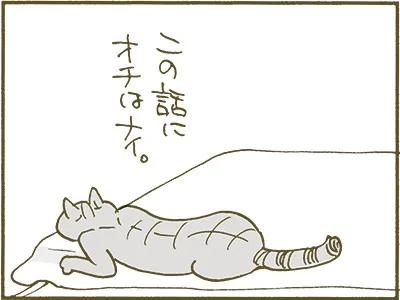 この話に
オチはナイ。